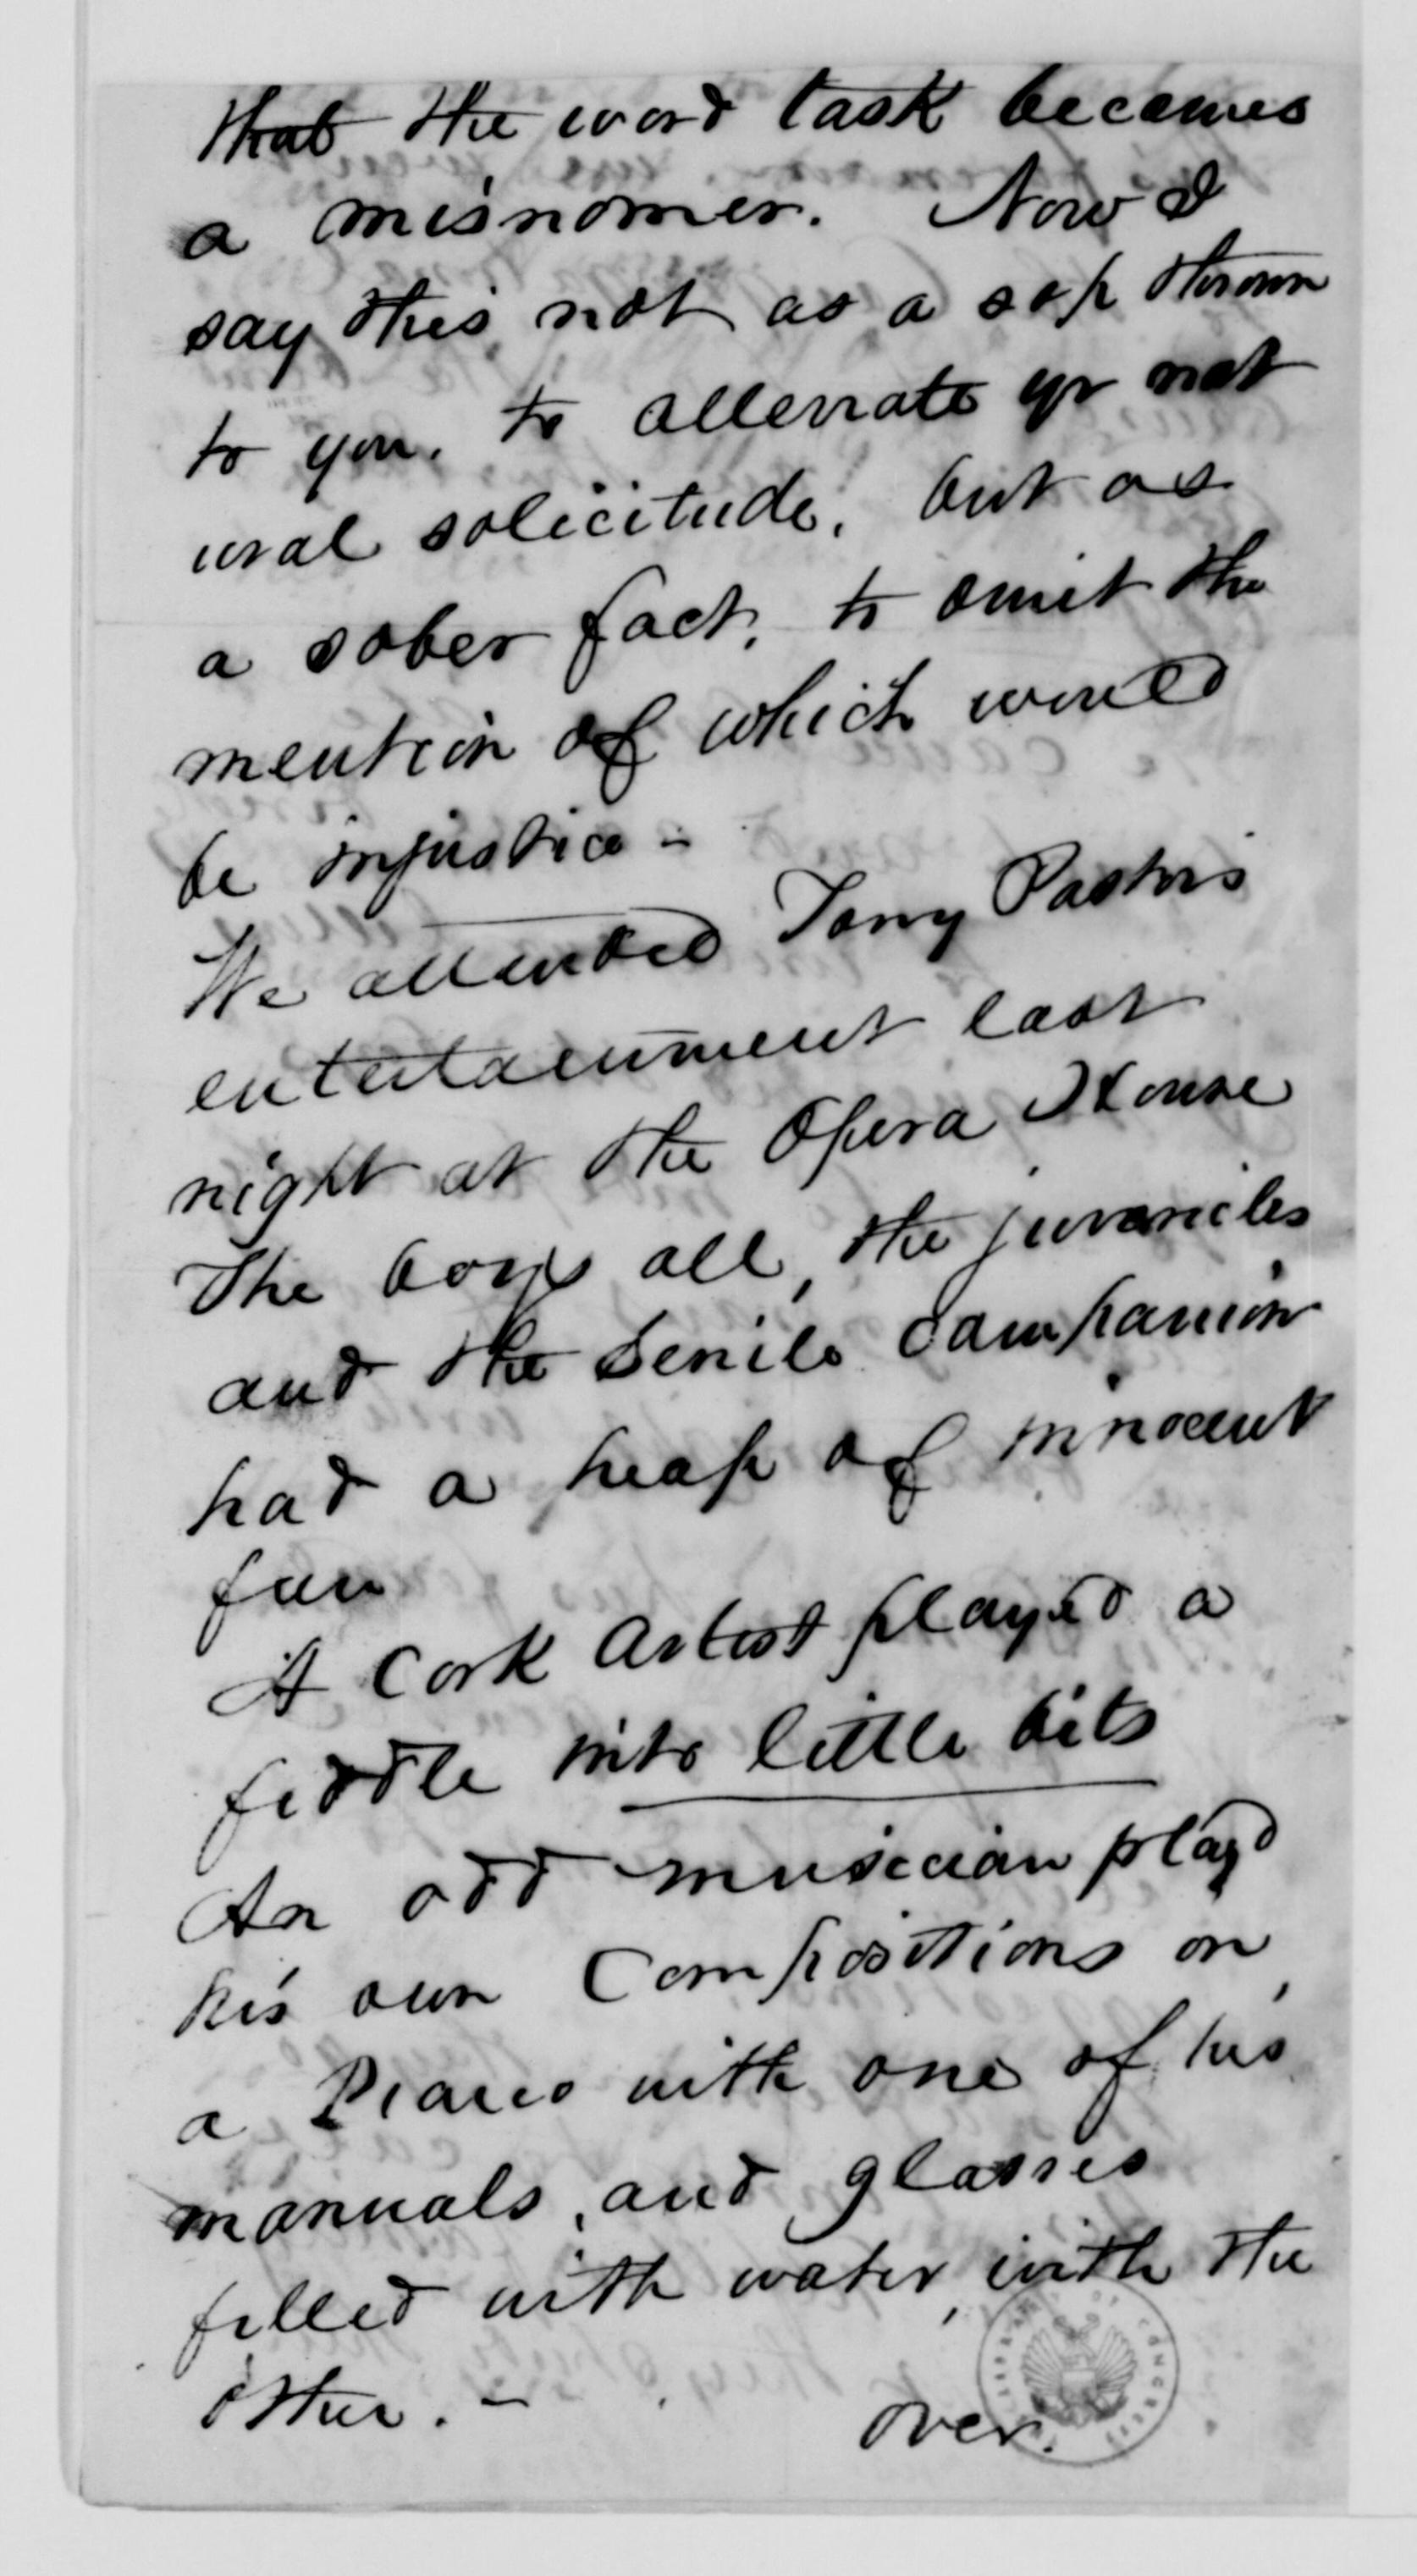 that the word task becomes
a misnomer. Now I
say this not as a sop thrown
to you, to alleviate yr nat
ural solicitude, but as
a sober fact, to omit the
mention of which would
be injustice -
We attended Tony Pastors
entertainment last
night at the Opera House
The boys all, the juveniles
and the Senile Companion
had a heap of innocent
fun
A Cork Artist played a
fiddle into little bits
An odd musician playd
his own Compositions on
a Piano with one of his
manuals, and glasses
filled with water, with the
other. -
over.